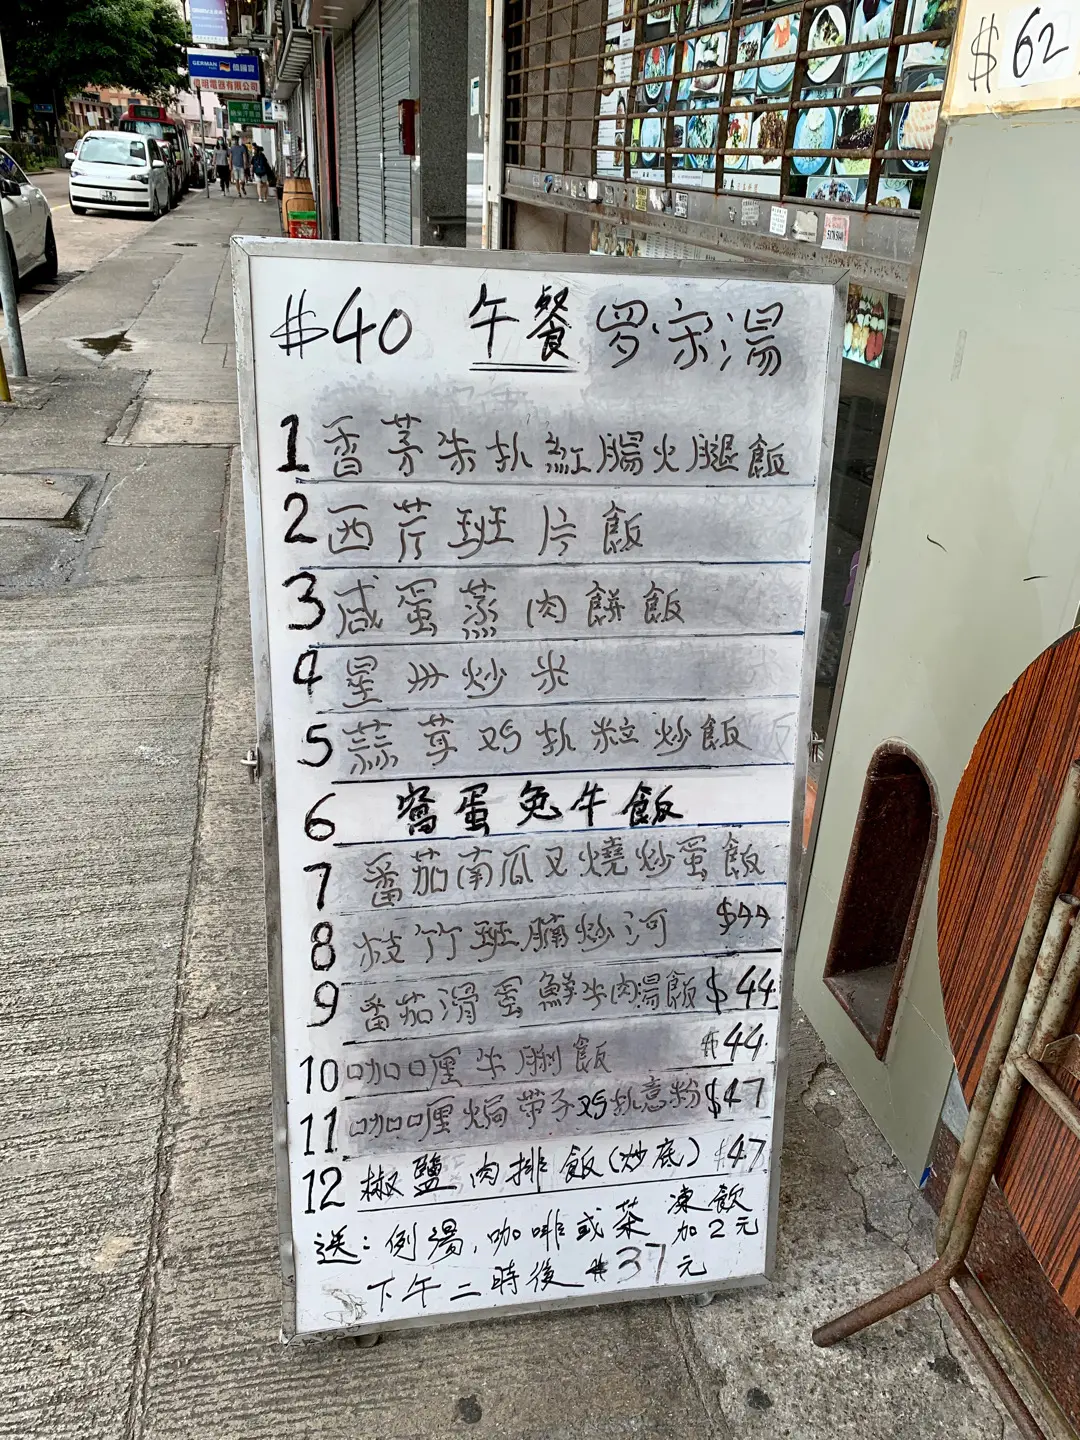 GERMAN
$62
$40 午餐 罗宋湯
1 香茅朱扒紅腸火腿飯
2 西芹班片飯
3 咸蛋蒸肉餅飯
4 星洲炒米
5 蒜茸鸡扒粒炒飯
6 窩蛋免牛飯
7 番茄南瓜叉燒炒蛋飯
8 枝竹班腩炒河 $44
9 番茄滑蛋鮮牛肉湯飯 $44
10 咖喱牛脷飯 $44
11 咖喱焗带子鸡扒意粉 $47
12 椒鹽肉排飯(炒底) $47
送：例湯，咖啡或茶 凍飲加2元
下午二時後 $37元